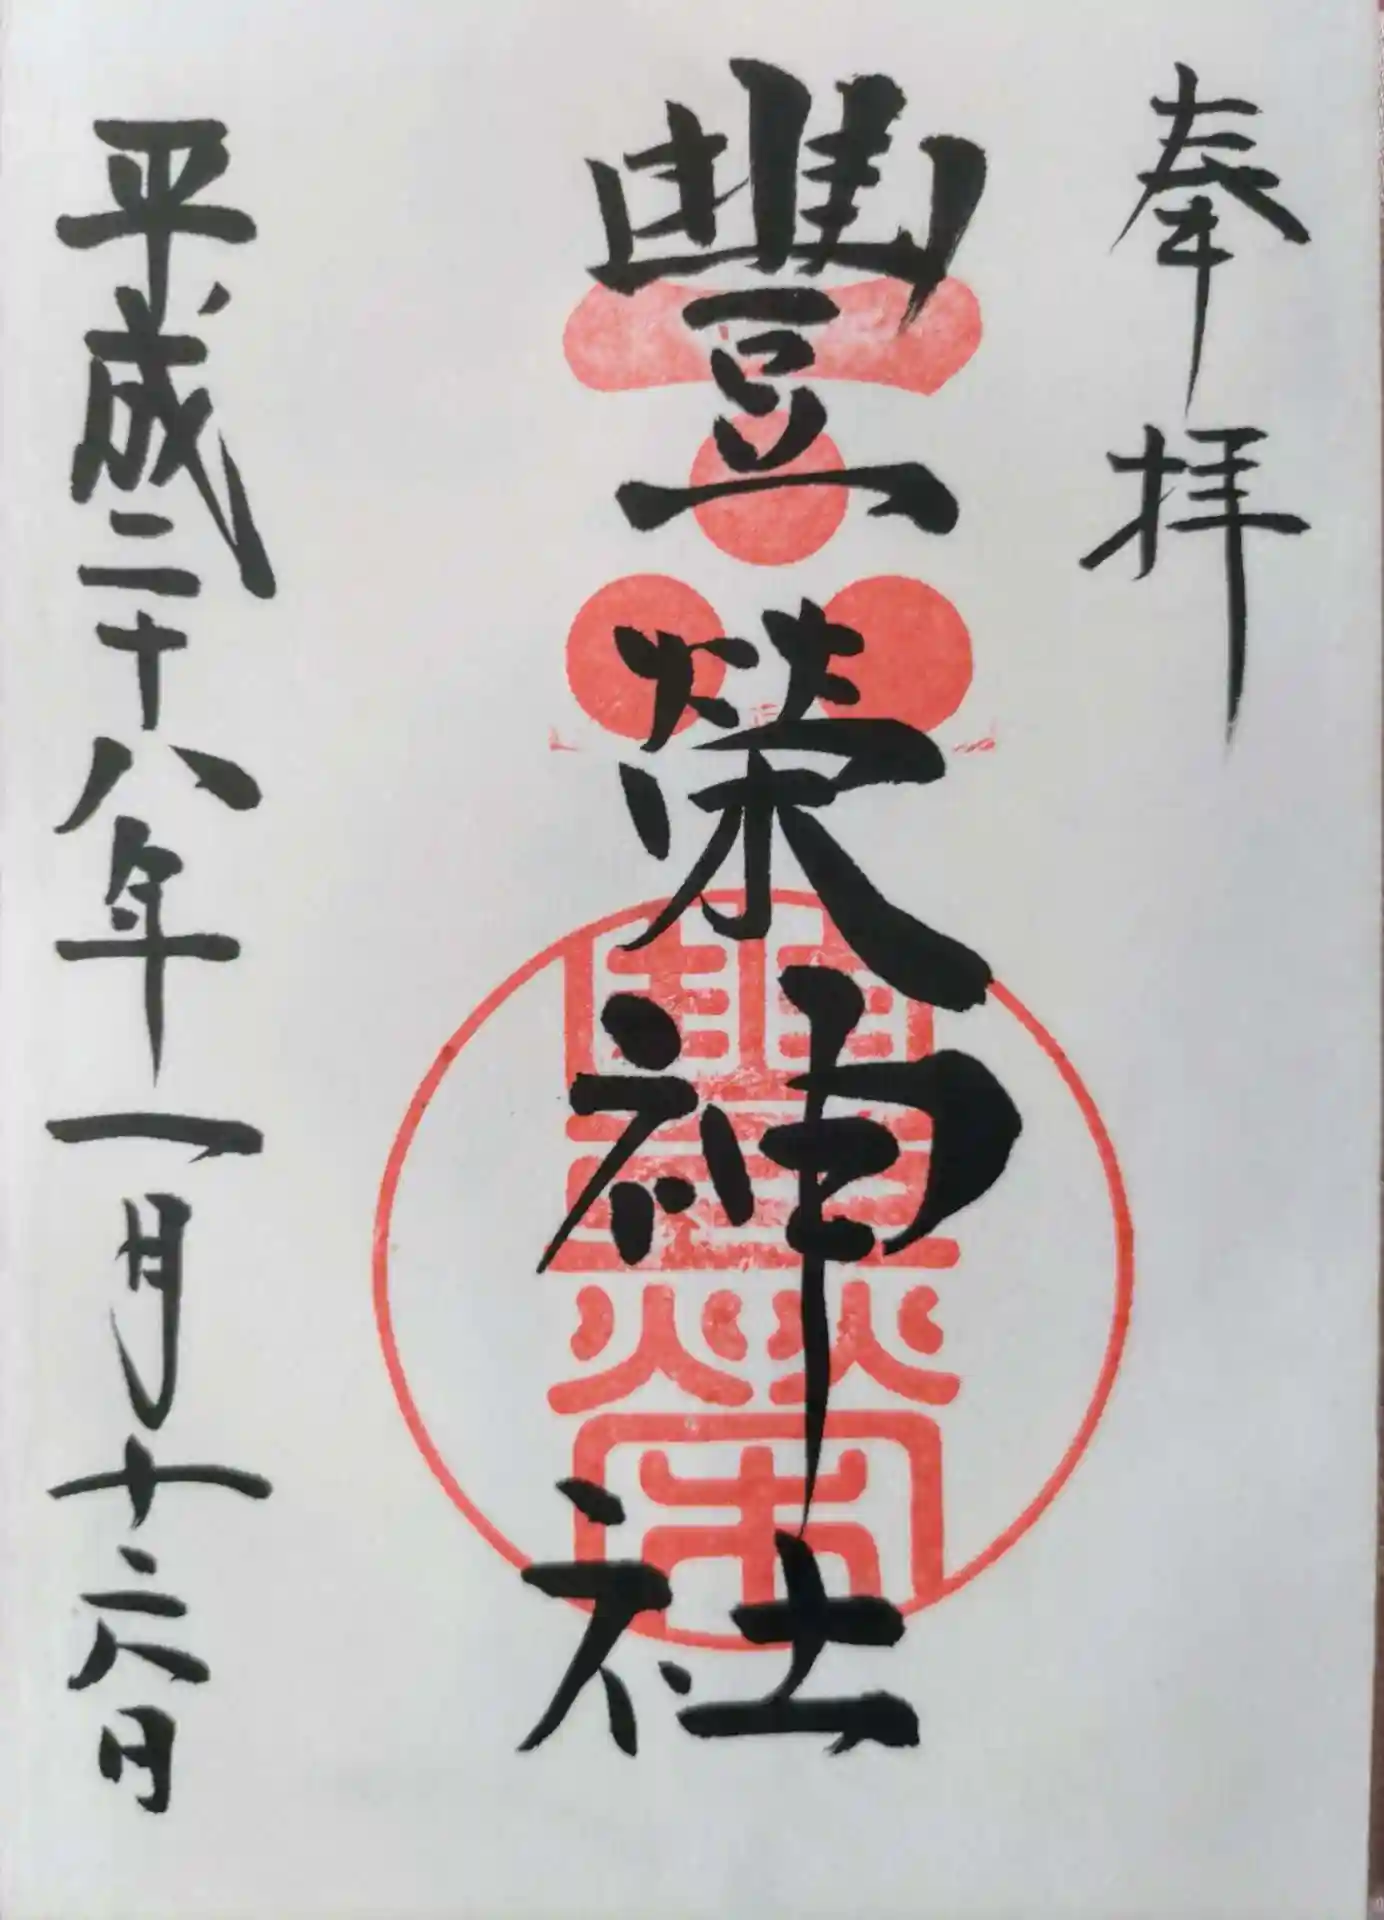 奉拝
豐榮神社
豐榮
平成二十八年一月十六日